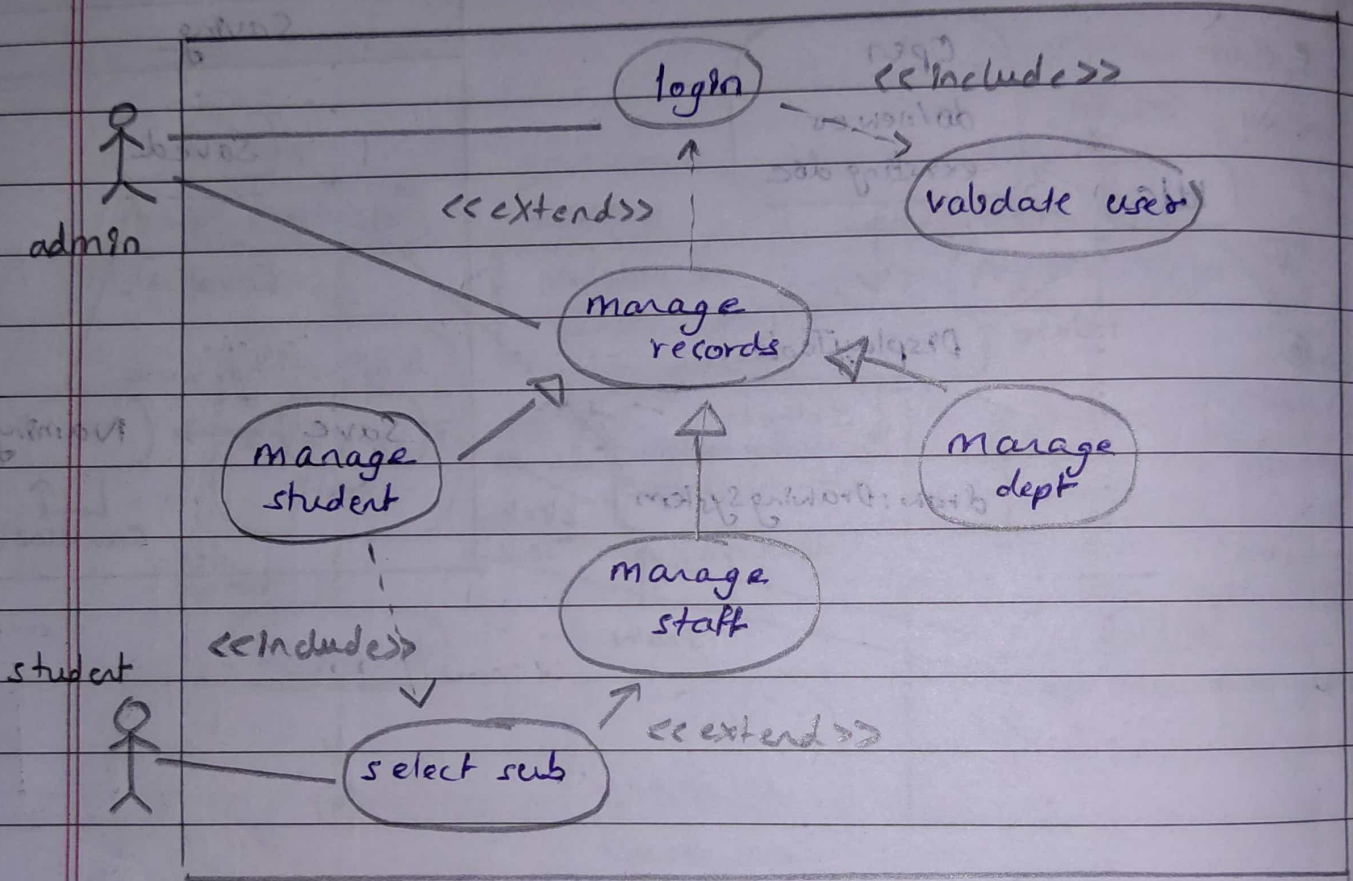 login
<<include>>
validate user
admin
<<extend>>
manage
records
manage
student
manage
dept
manage
staff
<<include>>
student
<<extend>>
select sub